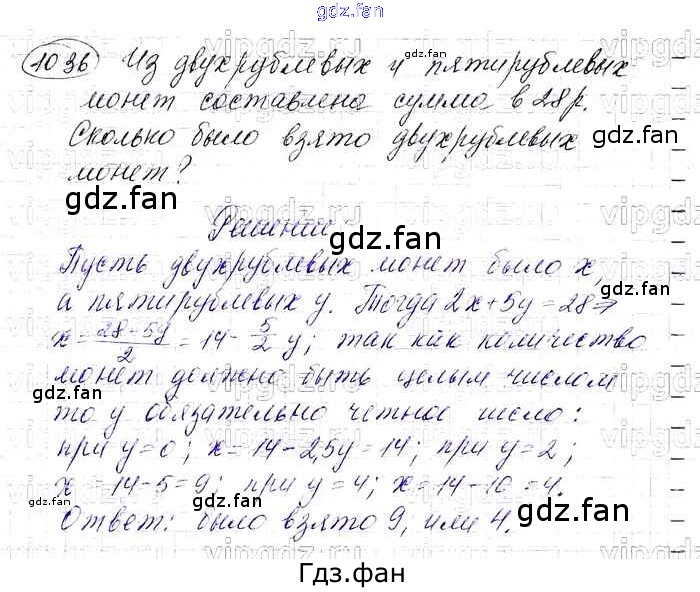 gdz.fan
1036 Из двухрублевых и пятирублевых
монет составлена сумма в 28 р.
Сколько было взято двухрублевых
монет?
Решение
Пусть двухрублевых монет было x,
а пятирублевых y. Тогда 2x+5y=28⇒
x = (28-5y)/2 = 14 - 5/2 y; так как количество
монет должно быть целым числом
то y обязательно четное число:
при y=0; x=14-2,5y=14; при y=2;
x=14-5=9; при y=4; x=14-10=4.
Ответ: было взято 9, или 4.
Гдз.фан